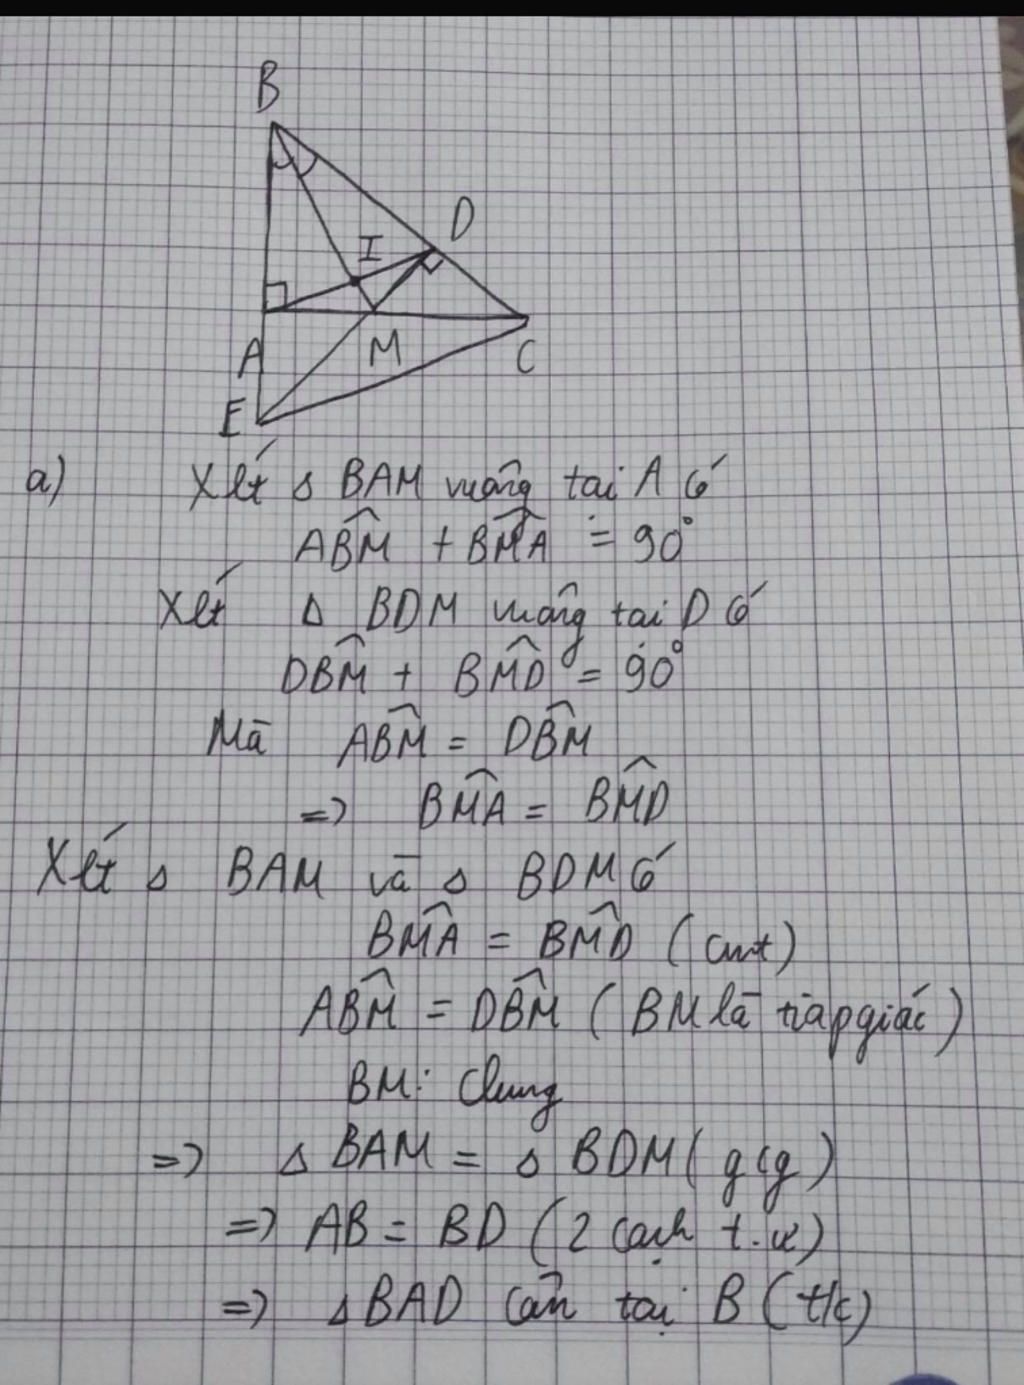 B
D
I
A
M
C
E
a) Xét Δ BAM vuông tại A có
ABM̂ + BM̂A = 90°
Xét Δ BDM vuông tại D có
DBM̂ + BM̂D = 90°
Mà ABM̂ = DBM̂
=> BM̂A = BM̂D
Xét Δ BAM và Δ BDM có
BM̂A = BM̂D (cmt)
ABM̂ = DB̂M (BM là tia pgiác)
BM: Chung
=> Δ BAM = Δ BDM (gcg)
=> AB = BD (2 cạnh t.ư)
=> Δ BAD cân tại B (t/c)